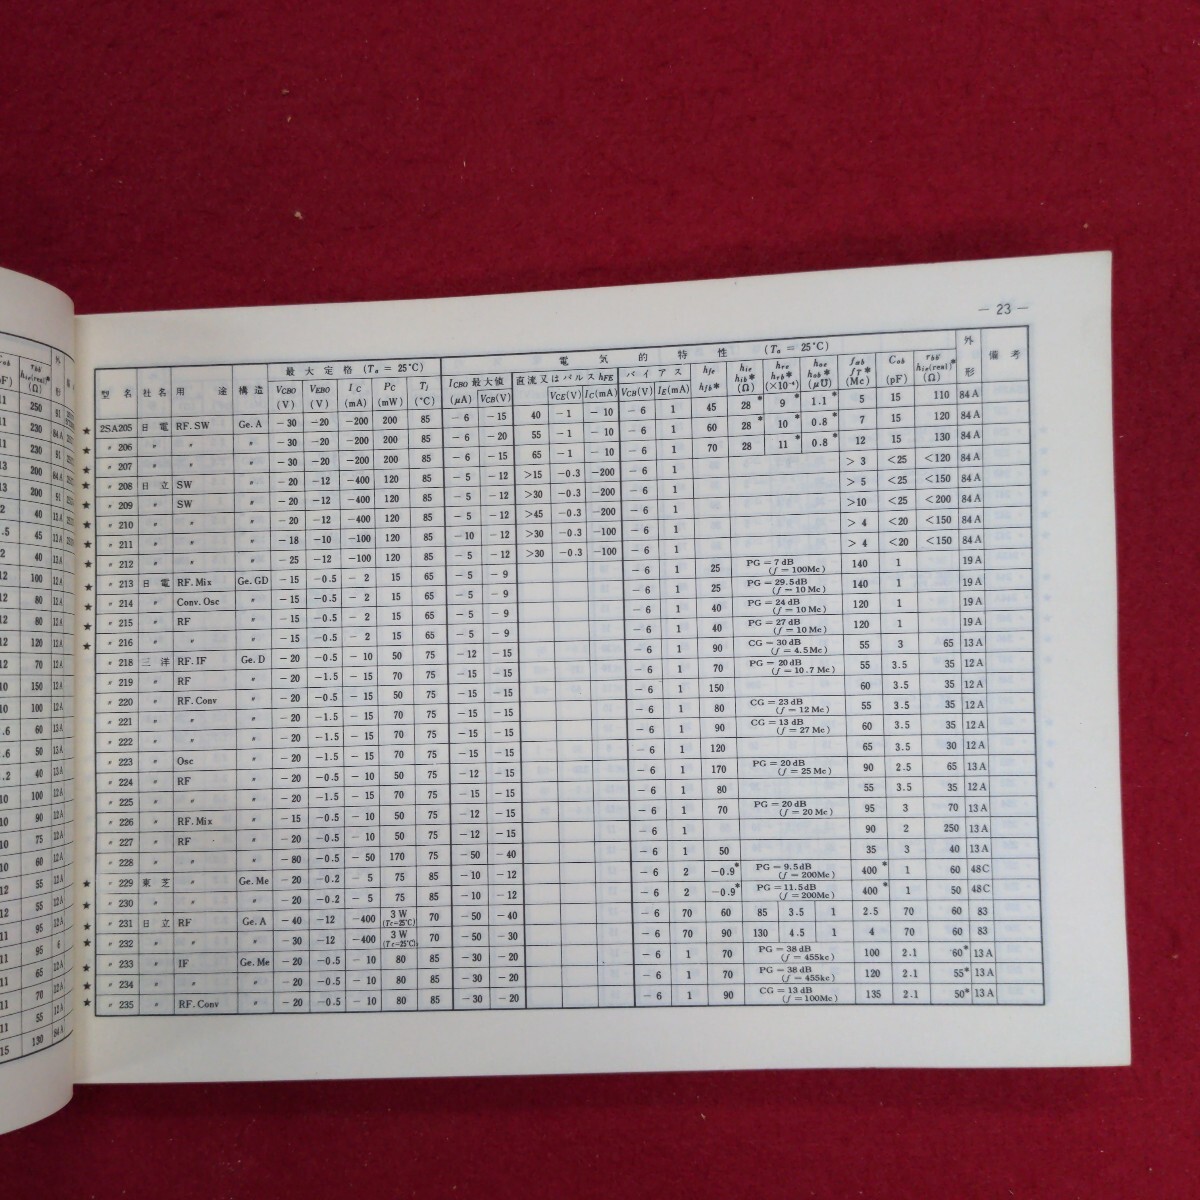 — 23 —
最大定格 (Ta = 25°C)
電気的特性 (Ta = 25°C)
型名 社名 用途 構造 VCBO (V) VEBO (V) IC (mA) PC (mW) Tj (°C) ICBO最大値 (μA) VCB(V) 直流又はパルスhFE VCE(V) IC(mA) バイアス VCB(V) IE(mA) hfe hfb* hie hib* (Ω) hre hrb* (×10⁻⁴) hoe hob* (μ℧) fab fT* (Mc) Cob (pF) rbb' hie(real)* (Ω) 外形 備考
★ 2SA205 日電 RF.SW Ge.A −30 −20 −200 200 85 −6 −15 40 −1 −10 −6 1 45 28* 9* 1.1* 5 15 110 84A
★ 〃206 〃 〃 〃 −30 −20 −200 200 85 −6 −20 55 −1 −10 −6 1 60 28* 10* 0.8* 7 15 120 84A
★ 〃207 〃 〃 〃 −30 −20 −200 200 85 −6 −15 65 −1 −10 −6 1 70 28 11* 0.8* 12 15 130 84A
★ 〃208 日立 SW 〃 −20 −12 −400 120 85 −5 −12 >15 −0.3 −200 −6 1 >3 <25 <120 84A
★ 〃209 〃 SW 〃 −20 −12 −400 120 85 −5 −12 >30 −0.3 −200 −6 1 >5 <25 <150 84A
★ 〃210 〃 〃 〃 −20 −12 −400 120 85 −5 −12 >45 −0.3 −200 −6 1 >10 <25 <200 84A
★ 〃211 〃 〃 〃 −18 −10 −100 120 85 −10 −12 >30 −0.3 −100 −6 1 >4 <20 <150 84A
★ 〃212 〃 〃 〃 −25 −12 −100 120 85 −5 −12 >30 −0.3 −100 −6 1 >4 <20 <150 84A
★ 〃213 日電 RF.Mix Ge.GD −15 −0.5 −2 15 65 −5 −9 −6 1 25 PG=7dB (f=100Mc) 140 1 19A
★ 〃214 〃 Conv.Osc 〃 −15 −0.5 −2 15 65 −5 −9 −6 1 25 PG=29.5dB (f=10Mc) 140 1 19A
★ 〃215 〃 RF 〃 −15 −0.5 −2 15 65 −5 −9 −6 1 40 PG=24dB (f=10Mc) 120 1 19A
★ 〃216 〃 〃 〃 −15 −0.5 −2 15 65 −5 −9 −6 1 40 PG=27dB (f=10Mc) 120 1 19A
〃218 三洋 RF.IF Ge.D −20 −0.5 −10 50 75 −12 −15 −6 1 90 CG=30dB (f=4.5Mc) 55 3 65 13A
〃219 〃 RF 〃 −20 −1.5 −15 70 75 −15 −15 −6 1 70 PG=20dB (f=10.7Mc) 55 3.5 35 12A
〃220 〃 RF.Conv 〃 −20 −0.5 −15 50 75 −15 −15 −6 1 150 60 3.5 35 12A
〃221 〃 〃 〃 −20 −1.5 −15 70 75 −15 −15 −6 1 80 CG=23dB (f=12Mc) 55 3.5 35 12A
〃222 〃 〃 〃 −20 −1.5 −15 70 75 −15 −15 −6 1 90 CG=13dB (f=27Mc) 60 3.5 35 12A
〃223 〃 Osc 〃 −20 −1.5 −15 70 75 −15 −15 −6 1 120 65 3.5 30 12A
〃224 〃 RF 〃 −20 −0.5 −10 50 75 −12 −15 −6 1 170 PG=20dB (f=25Mc) 90 2.5 65 13A
〃225 〃 〃 〃 −20 −1.5 −15 70 75 −15 −15 −6 1 80 55 3.5 35 12A
〃226 〃 RF.Mix 〃 −15 −0.5 −10 50 75 −12 −15 −6 1 70 PG=20dB (f=20Mc) 95 3 70 13A
〃227 〃 RF 〃 −20 −0.5 −10 50 75 −12 −15 −6 1 90 2 250 13A
〃228 〃 〃 〃 −80 −0.5 −50 170 75 −50 −40 −6 1 50 35 3 40 13A
★ 〃229 東芝 〃 Ge.Me −20 −0.2 −5 75 85 −10 −12 −6 2 −0.9* PG=9.5dB (f=200Mc) 400* 1 60 48C
★ 〃230 〃 〃 〃 −20 −0.2 −5 75 85 −10 −12 −6 2 −0.9* PG=11.5dB (f=200Mc) 400* 1 50 48C
★ 〃231 日立 RF Ge.A −40 −12 −400 3W (Tc=25°C) 70 −50 −40 −6 70 60 85 3.5 1 2.5 70 60 83
★ 〃232 〃 〃 〃 −30 −12 −400 3W (Tc=25°C) 70 −50 −30 −6 70 90 130 4.5 1 4 70 60 83
★ 〃233 〃 IF Ge.Me −20 −0.5 −10 80 85 −30 −20 −6 1 70 PG=38dB (f=455kc) 100 2.1 60* 13A
★ 〃234 〃 〃 〃 −20 −0.5 −10 80 85 −30 −20 −6 1 70 PG=38dB (f=455kc) 120 2.1 55* 13A
★ 〃235 〃 RF.Conv 〃 −20 −0.5 −10 80 85 −30 −20 −6 1 90 CG=13dB (f=100Mc) 135 2.1 50* 13A